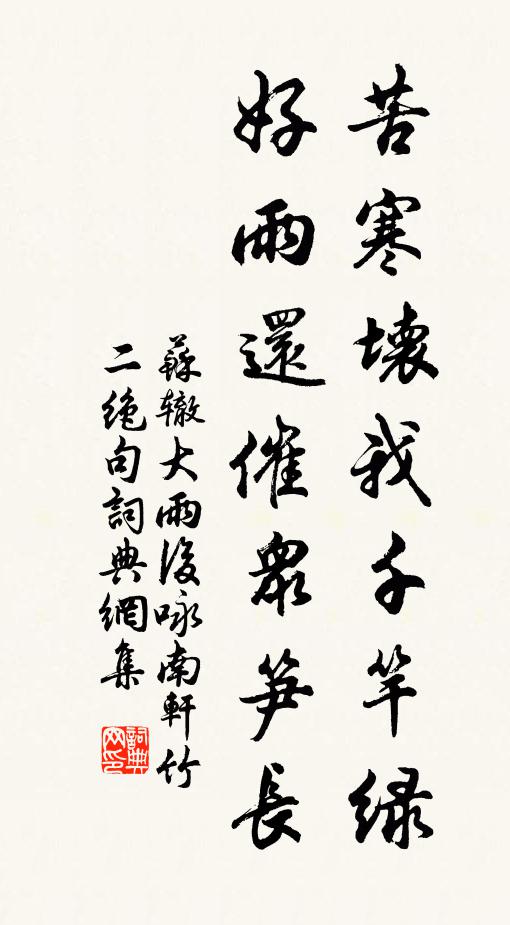 苦寒壞我千竿綠
好雨還催衆笋長
蘇辙大雨後咏南軒竹
二絶句詞典網集
詞典网印